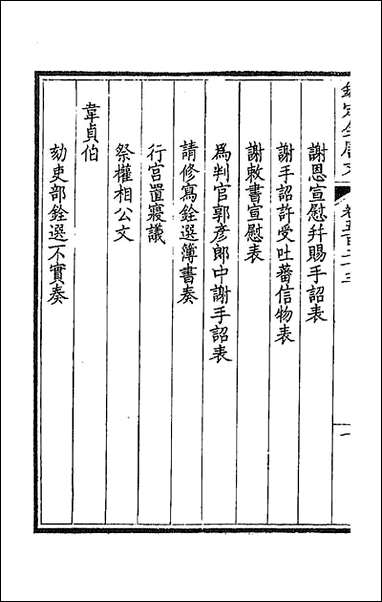 欽定全唐文 卷五百二十三 一
謝恩宣慰幷賜手詔表
謝手詔許受吐蕃信物表
謝敕書宣慰表
為判官郭彥郎中謝手詔表
請修寫銓選簿書奏
行宫置寢議
祭權相公文
韋貞伯
劾吏部銓選不實奏